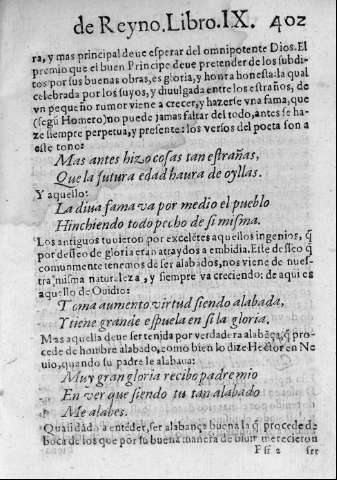 de Reyno. Libro. IX. 402
ra, y mas principal deue esperar del omnipotente Dios. El
premio que el buen Principe deue pretender de los subdi-
tos por sus buenas obras, es gloria, y honra honesta: la qual
celebrada por los suyos, y diuulgada entre los estraños, de
vn pequeño rumor viene a crecer, y hazerse vna fama, que
(segũ Homero) no puede jamas faltar del todo, antes se ha-
ze siempre perpetua, y presente: los versos del poeta son a
este tono:
Mas antes hizo cosas tan estrañas,
Que la futura edad haura de oyllas.
Y aquello:
La diua fama va por medio el pueblo
Hinchiendo todo pecho de si misma.
Los antiguos tuuieron por excelẽtes aquellos ingenios, q̃
por desseo de gloria eran atraydos a embidia. Este desseo q̃
comunmente tenemos de ser alabados, nos viene de nues-
tra misma naturaleza, y siempre va creciendo: de aqui es
aquello de Ouidio:
Toma aumento virtud siendo alabada,
Y tiene grande espuela en si la gloria.
Mas aquella deue ser tenida por verdadera alabãça, q̃ pro-
cede de hombre alabado, como bien lo dize Hector en Ne
uio, quando su padre le alabaua:
Muy gran gloria recibo padre mio
En ver que siendo tu tan alabado
Me alabes.
Quãdo a entẽder, ser alabança buena la q̃ procede de
boca de los que por su buena manera de biuir merecieron
Fff 2 ser